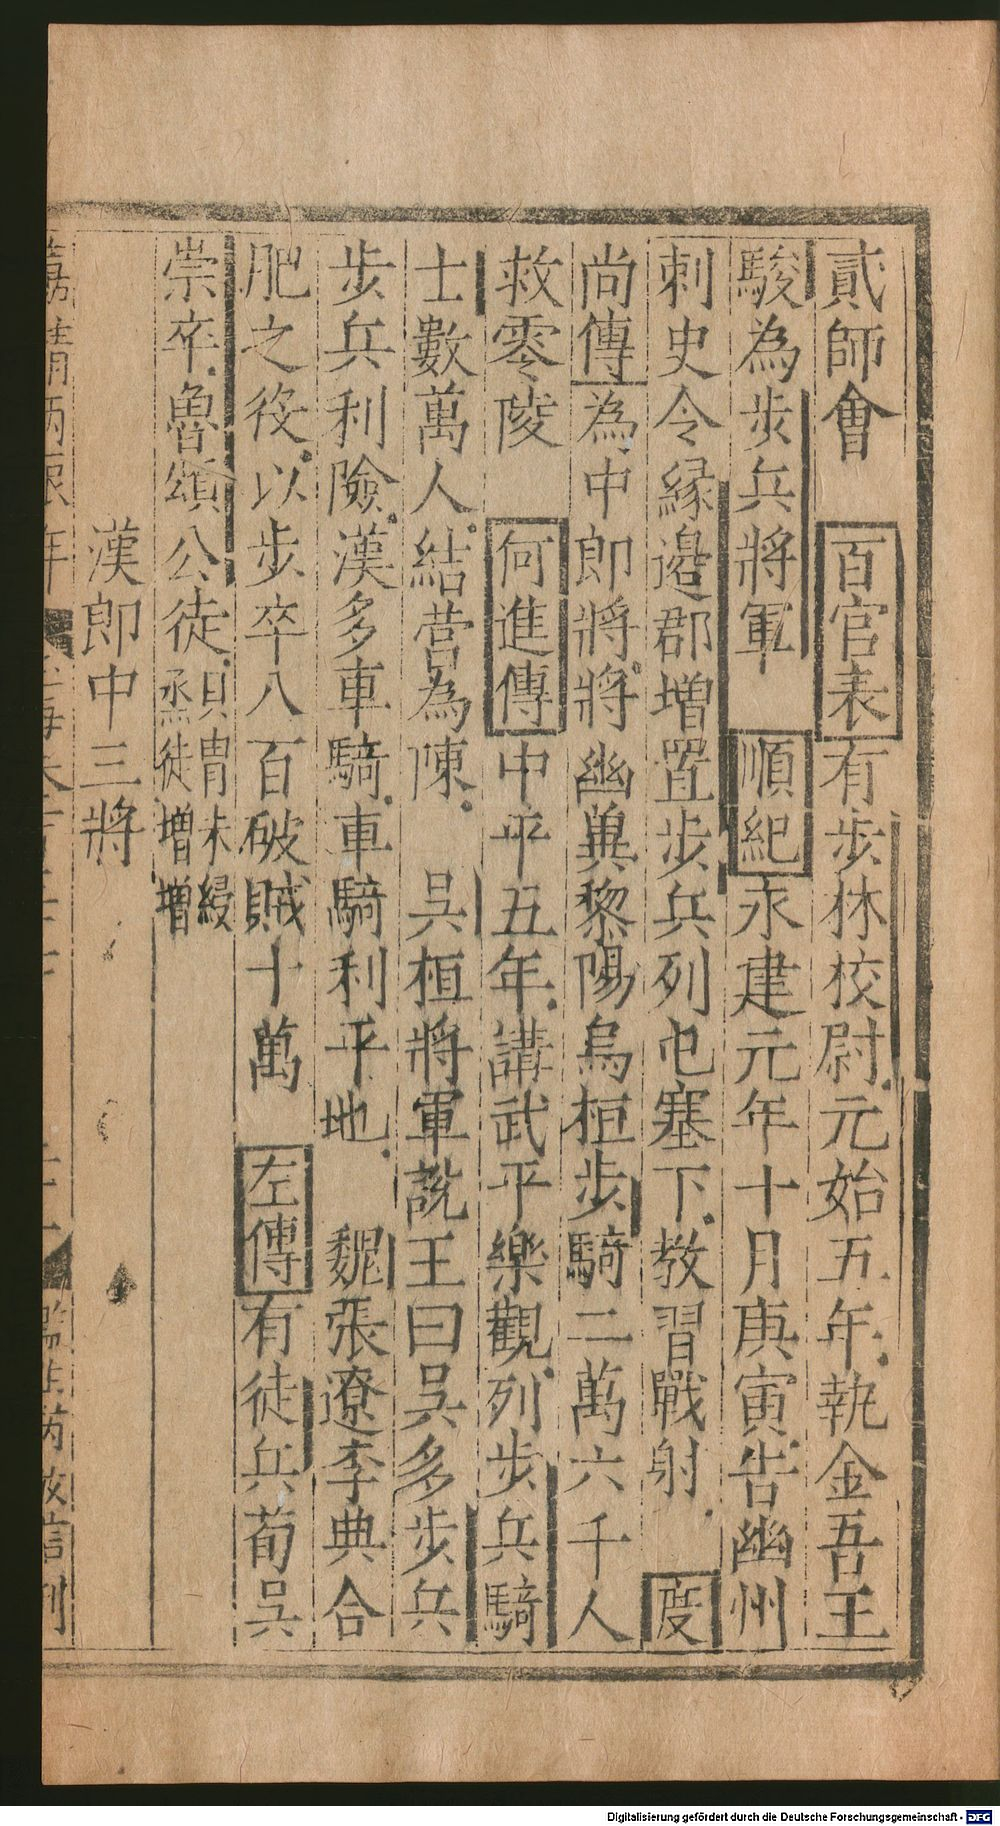 貳師會 百官表有步林校尉元始五年執金吾王
駿為步兵將軍 順紀永建元年十月庚寅告幽州
刺史令緣邊郡增置步兵列屯塞下教習戰射 度
尚傳為中郎將將幽冀黎陽烏桓步騎二萬六千人
救零陵 何進傳中平五年講武平樂觀列步兵騎
士數萬人結營為陳 吳桓將軍說王曰吳多步兵
步兵利險漢多車騎車騎利平地 魏張遼李典合
肥之役以步卒八百破賊十萬 左傳有徒兵荀吳
崇卒魯頌公徒貝冑朱綅
烝徒增增
漢郎中三將
Digitalisierung gefördert durch die Deutsche Forschungsgemeinschaft - DFG